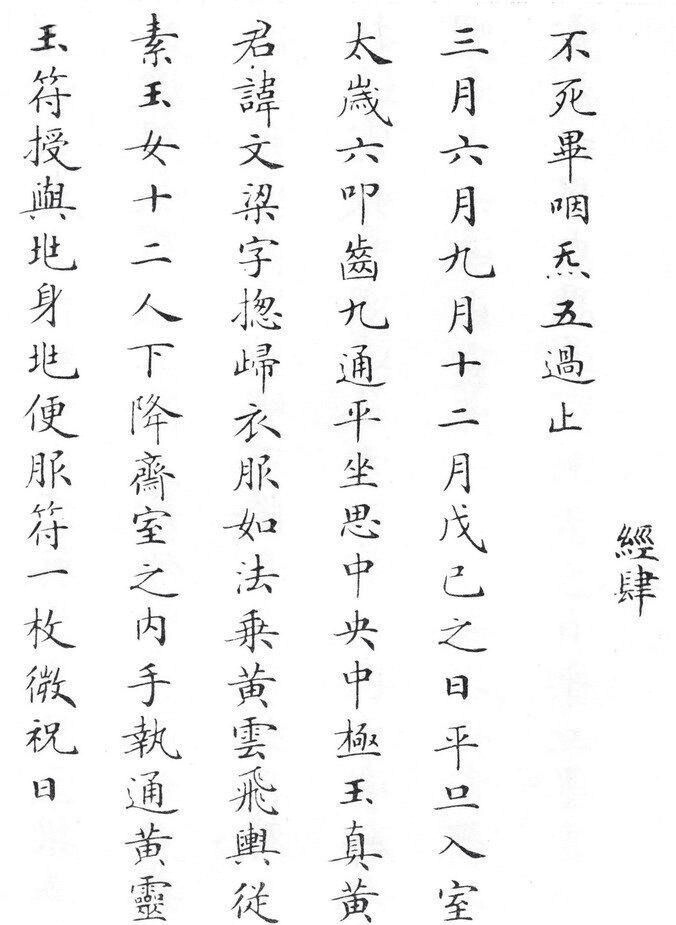 經肆
不死畢咽炁五過止
三月六月九月十二月戊己之日平旦入室
太歲六叩齒九通平坐思中央中極玉真黃
君諱文梁字揔歸衣服如法乗黃雲飛輿從
素玉女十二人下降齋室之内手執通黃靈
玉符授與兆身兆便服符一枚微祝曰